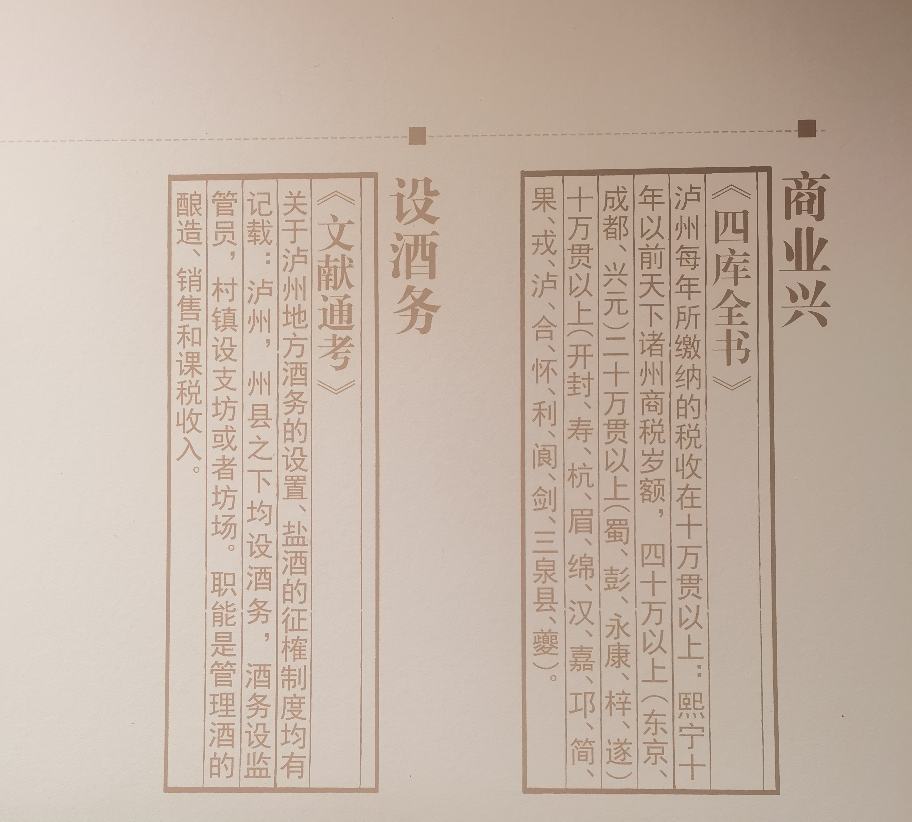 商业兴
《四库全书》
泸州每年所缴纳的税收在十万贯以上：熙宁十
年以前天下诸州商税岁额，四十万以上（东京、
成都、兴元）二十万贯以上（蜀、彭、永康、梓、遂）
十万贯以上（开封、寿、杭、眉、绵、汉、嘉、邛、简、
果、戎、泸、合、怀、利、阆、剑、三泉县、夔）。
设酒务
《文献通考》
关于泸州地方酒务的设置、盐酒的征榷制度均有
记载：泸州，州县之下均设酒务，酒务设监
管员，村镇设支坊或者坊场。职能是管理酒的
酿造、销售和课税收入。